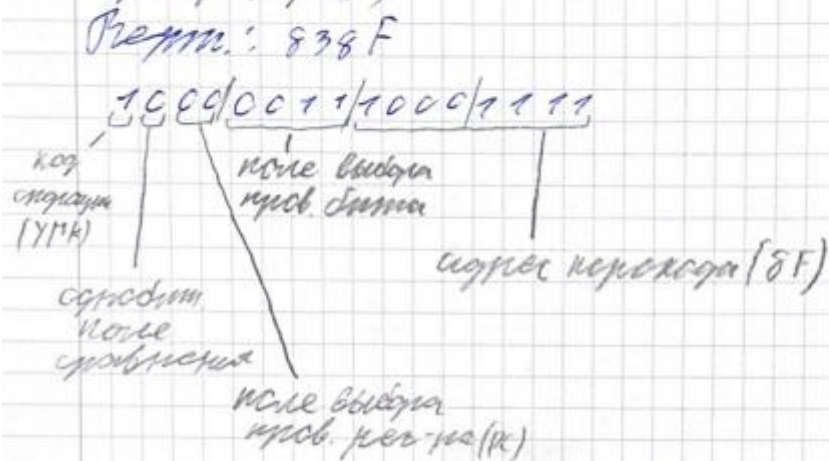 Верт.: 838F
1000/0011/1000/1111
код
операции
(УМК)
поле выбора
пров. бита
адрес перехода (8F)
однобит.
поле
сравнения
поле выбора
пров. рег-ра (РС)